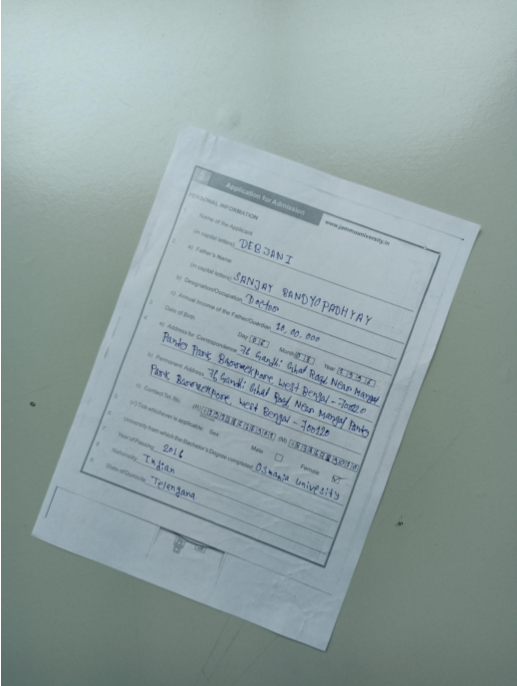 Application for Admission
www.jammuuniversity.in
PERSONAL INFORMATION
Name of the Applicant
(in capital letters) DEBJANI
a) Father's Name
(in capital letters) SANJAY BANDYOPADHYAY
b) Designation/Occupation Doctor
c) Annual Income of the Father/Guardian 10,00,000
Date of Birth Day Month Year
a) Address for Correspondence 76 Gandhi Ghat Road Near Mangal
Pandey Park Barrackpore West Bengal - 700120
b) Permanent Address 76 Gandhi Ghat Road Near Mangal Pandey
Park Barrackpore West Bengal - 700120
c) Contact Tel. No. (R) (M)
(✓) Tick whichever is applicable: Sex Male Female ✓
University from which the Bachelor's Degree completed Osmania University
Year of Passing 2016
Nationality Indian
State of Domicile Telangana